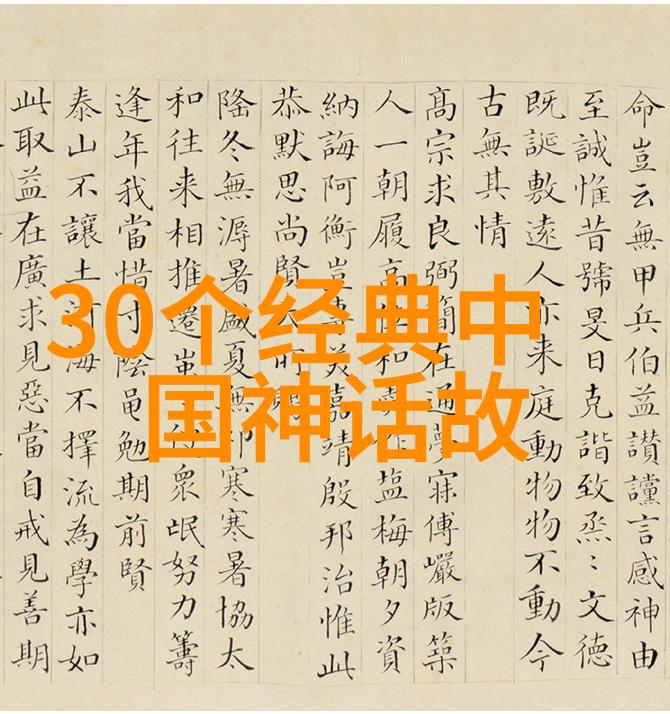 30个经典中
国神话故
命豈云無甲兵伯益讃讜言感神由
至誠惟昔號旻日克諧致烝〻文德
既誕敷遠人亦来庭動物物不動今
古無其情
髙宗求良弼簡在通夢寐傅巖版築
人一朝履高位和羹作塩梅朝夕資
納誨阿衡豈專美嘉靖殷邦治惟此
恭默思尚賢
隆冬無溽暑盛夏無祁寒寒暑協太
和往来相推遷眾氓努力籌
逢年我當惜寸陰黽勉期前賢
泰山不讓土河海不擇流為學亦如
此取益在廣求見惡當自戒見善期